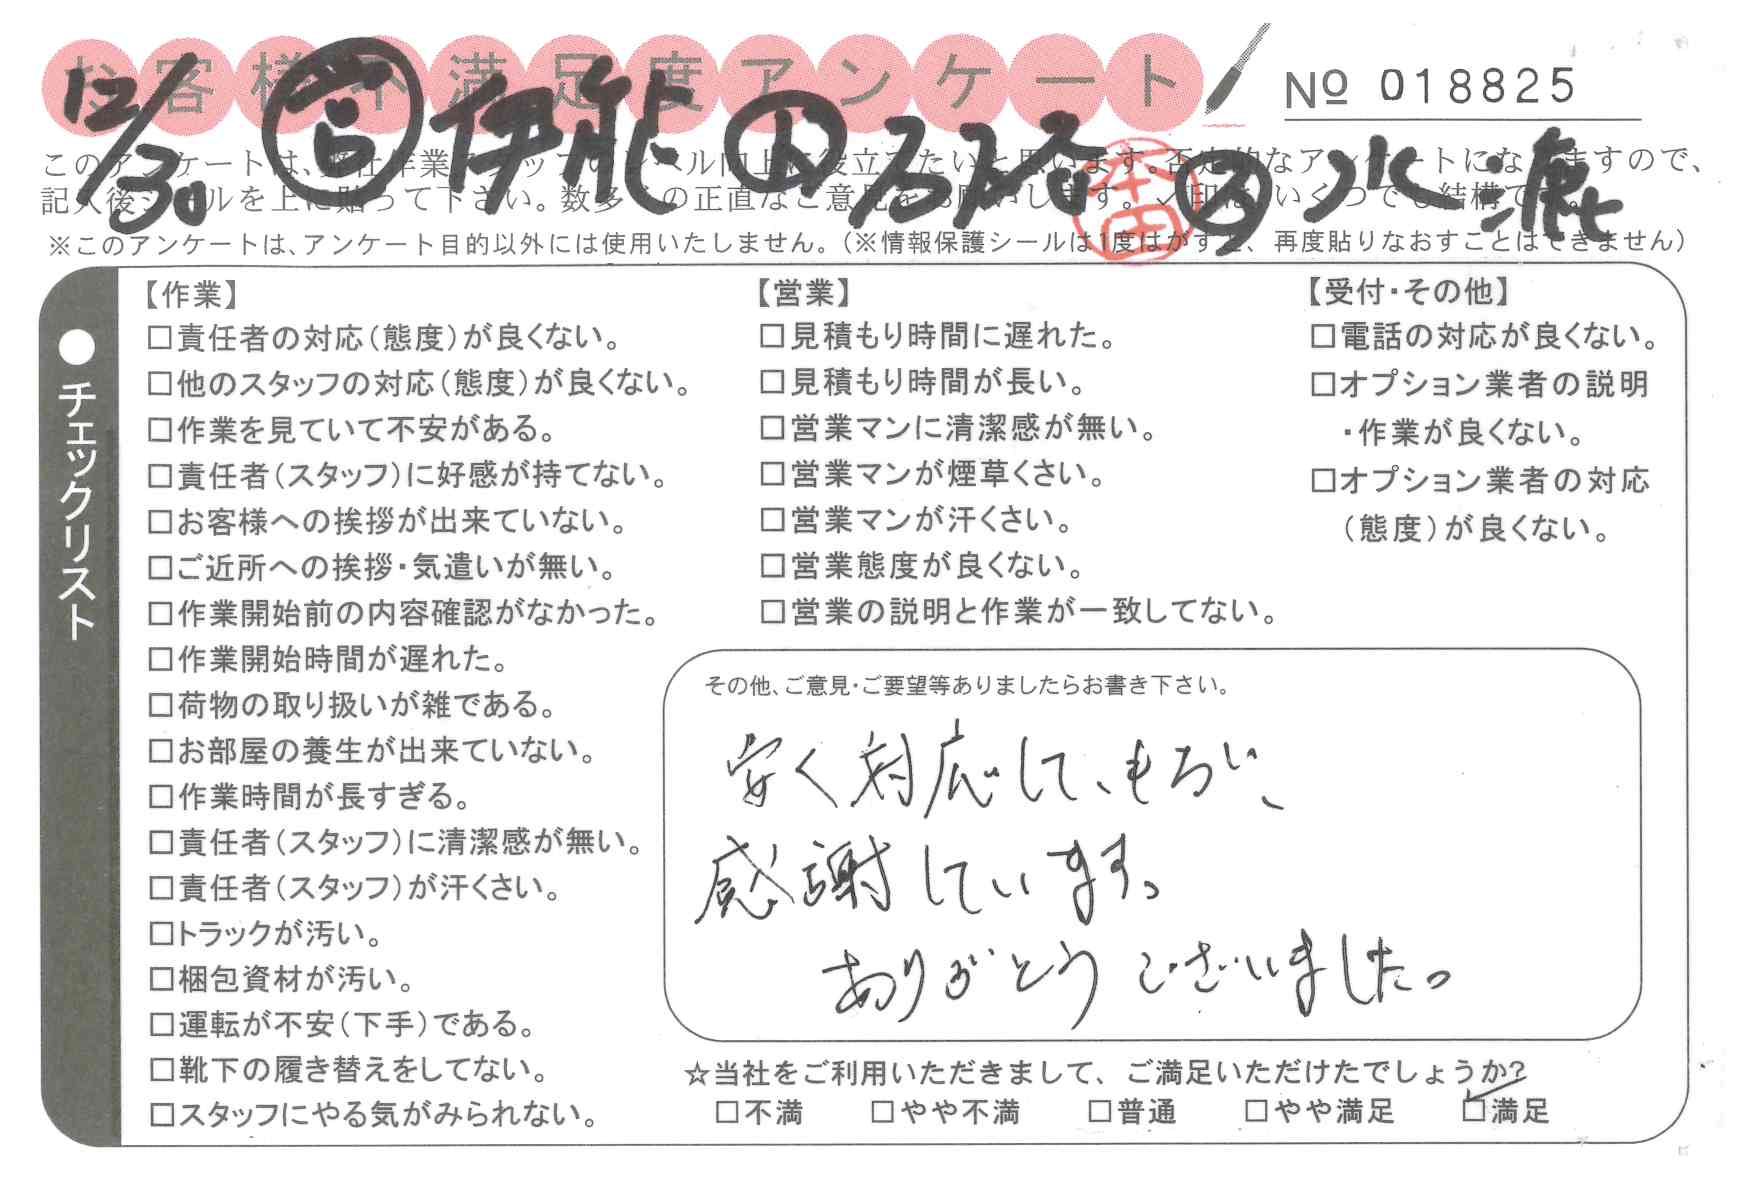 お客様不満足度アンケート
№ 018825
12/30 営 伊能 水漉
このアンケートは、弊社作業スタッフのレベル向上に役立てたいと思います。否定的なアンケートになりますので、
記入後シールを上に貼って下さい。数多くの正直なご意見をお願いします。✓印はいくつでも結構です。
※このアンケートは、アンケート目的以外には使用いたしません。(※情報保護シールは1度はがすと、再度貼りなおすことはできません)
●チェックリスト
【作業】
□責任者の対応(態度)が良くない。
□他のスタッフの対応(態度)が良くない。
□作業を見ていて不安がある。
□責任者(スタッフ)に好感が持てない。
□お客様への挨拶が出来ていない。
□ご近所への挨拶・気遣いが無い。
□作業開始前の内容確認がなかった。
□作業開始時間が遅れた。
□荷物の取り扱いが雑である。
□お部屋の養生が出来ていない。
□作業時間が長すぎる。
□責任者(スタッフ)に清潔感が無い。
□責任者(スタッフ)が汗くさい。
□トラックが汚い。
□梱包資材が汚い。
□運転が不安(下手)である。
□靴下の履き替えをしてない。
□スタッフにやる気がみられない。
【営業】
□見積もり時間に遅れた。
□見積もり時間が長い。
□営業マンに清潔感が無い。
□営業マンが煙草くさい。
□営業マンが汗くさい。
□営業態度が良くない。
□営業の説明と作業が一致してない。
【受付・その他】
□電話の対応が良くない。
□オプション業者の説明
・作業が良くない。
□オプション業者の対応
(態度)が良くない。
その他、ご意見・ご要望等ありましたらお書き下さい。
安く対応して、もらい、
感謝しています。
ありがとうございました。
☆当社をご利用いただきまして、ご満足いただけたでしょうか?
□不満 □やや不満 □普通 □やや満足 ☑満足